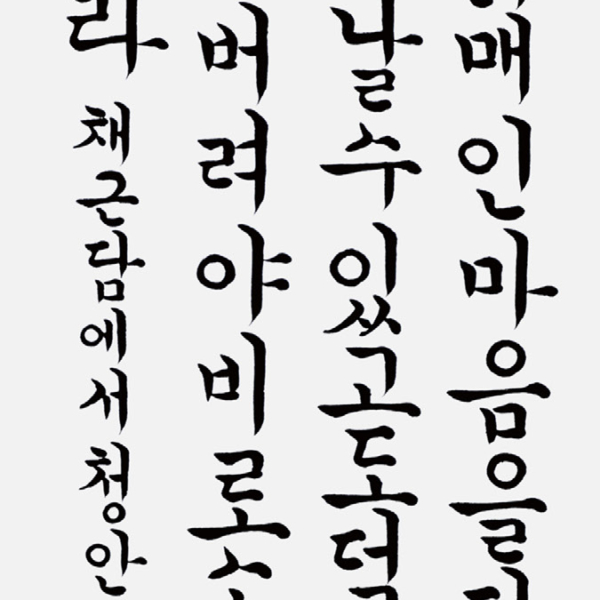 매인마음을
날수있고도덕
버려야비로소
라 채근담에서 청안